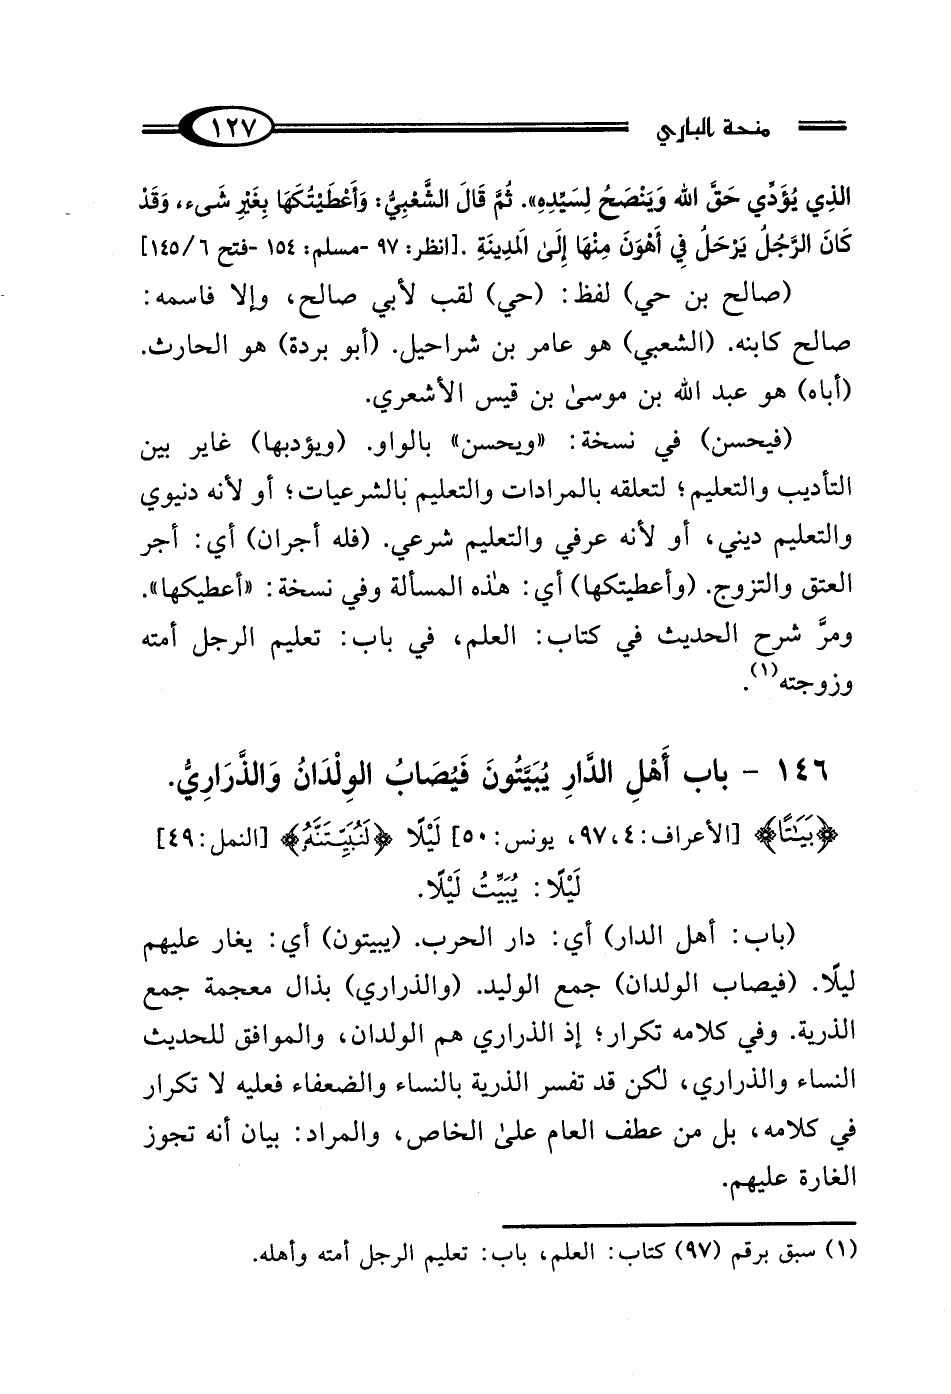 منحة الباري
١٢٧
الذِي يُؤَدِّي حَقَّ الله وَيَنْصَحُ لِسَيِّدِهِ». ثُمَّ قَالَ الشَّعْبِيُّ: وَأَعْطَيْتُكَهَا بِغَيْرِ شَىء، وَقَدْ
كَانَ الرَّجُلُ يَرْحَلُ فِي أَهْوَنَ مِنْهَا إِلَىٰ المَدِينَةِ .[انظر: ٩٧ -مسلم: ١٥٤ -فتح ٦/ ١٤٥]
(صالح بن حي) لفظ: (حي) لقب لأبي صالح، وإلا فاسمه:
صالح كابنه. (الشعبي) هو عامر بن شراحيل. (أبو بردة) هو الحارث.
(أباه) هو عبد الله بن موسىٰ بن قيس الأشعري.
(فيحسن) في نسخة: «ويحسن» بالواو. (ويؤدبها) غاير بين
التأديب والتعليم؛ لتعلقه بالمرادات والتعليم بالشرعيات؛ أو لأنه دنيوي
والتعليم ديني، أو لأنه عرفي والتعليم شرعي. (فله أجران) أي: أجر
العتق والتزوج. (وأعطيتكها) أي: هذه المسألة وفي نسخة: «أعطيكها».
ومرَّ شرح الحديث في كتاب: العلم، في باب: تعليم الرجل أمته
وزوجته(١).
١٤٦ - باب أَهْلِ الدَّارِ يُبَيَّتُونَ فَيُصَابُ الوِلْدَانُ وَالذَّرَارِيُّ.
﴿بَيَٰتًا﴾ [الأعراف: ٤، ٩٧، يونس: ٥٠] لَيْلًا ﴿لَنُبَيِّتَنَّهُۥ﴾ [النمل: ٤٩]
لَيْلًا: يُبَيِّتُ لَيْلًا.
(باب: أهل الدار) أي: دار الحرب. (يبيتون) أي: يغار عليهم
ليلًا. (فيصاب الولدان) جمع الوليد. (والذراري) بذال معجمة جمع
الذرية. وفي كلامه تكرار؛ إذ الذراري هم الولدان، والموافق للحديث
النساء والذراري، لكن قد تفسر الذرية بالنساء والضعفاء فعليه لا تكرار
في كلامه، بل من عطف العام علىٰ الخاص، والمراد: بيان أنه تجوز
الغارة عليهم.
(١) سبق برقم (٩٧) كتاب: العلم، باب: تعليم الرجل أمته وأهله.